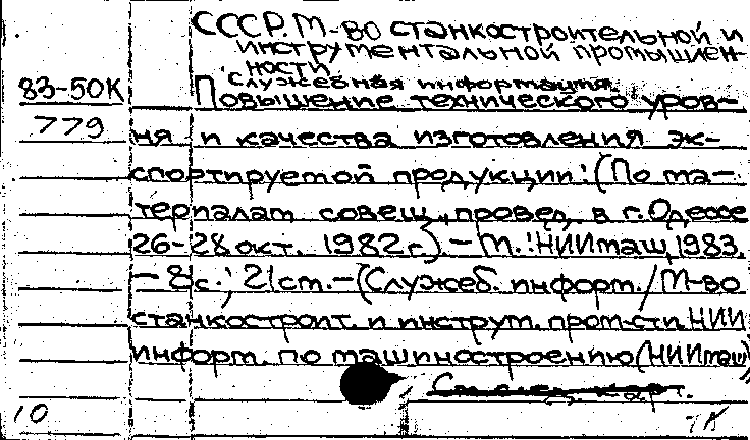 СССР. М-во станкостроительной и
инструментальной промышлен-
ности.
Служебная информация.
83-50К
Повышение технического уров-
779
ня и качества изготовления эк-
спортируемой продукции: (По ма-
териалам совещ., провед. в г. Одессе
26-28 окт. 1982 г.) - М.: НИИмаш, 1983.
- 81 с.; 21 см. - (Служеб. информ. / М-во
станкостроит. и инструм. пром-сти. НИИ
информ. по машиностроению (НИИмаш)
карт.
10